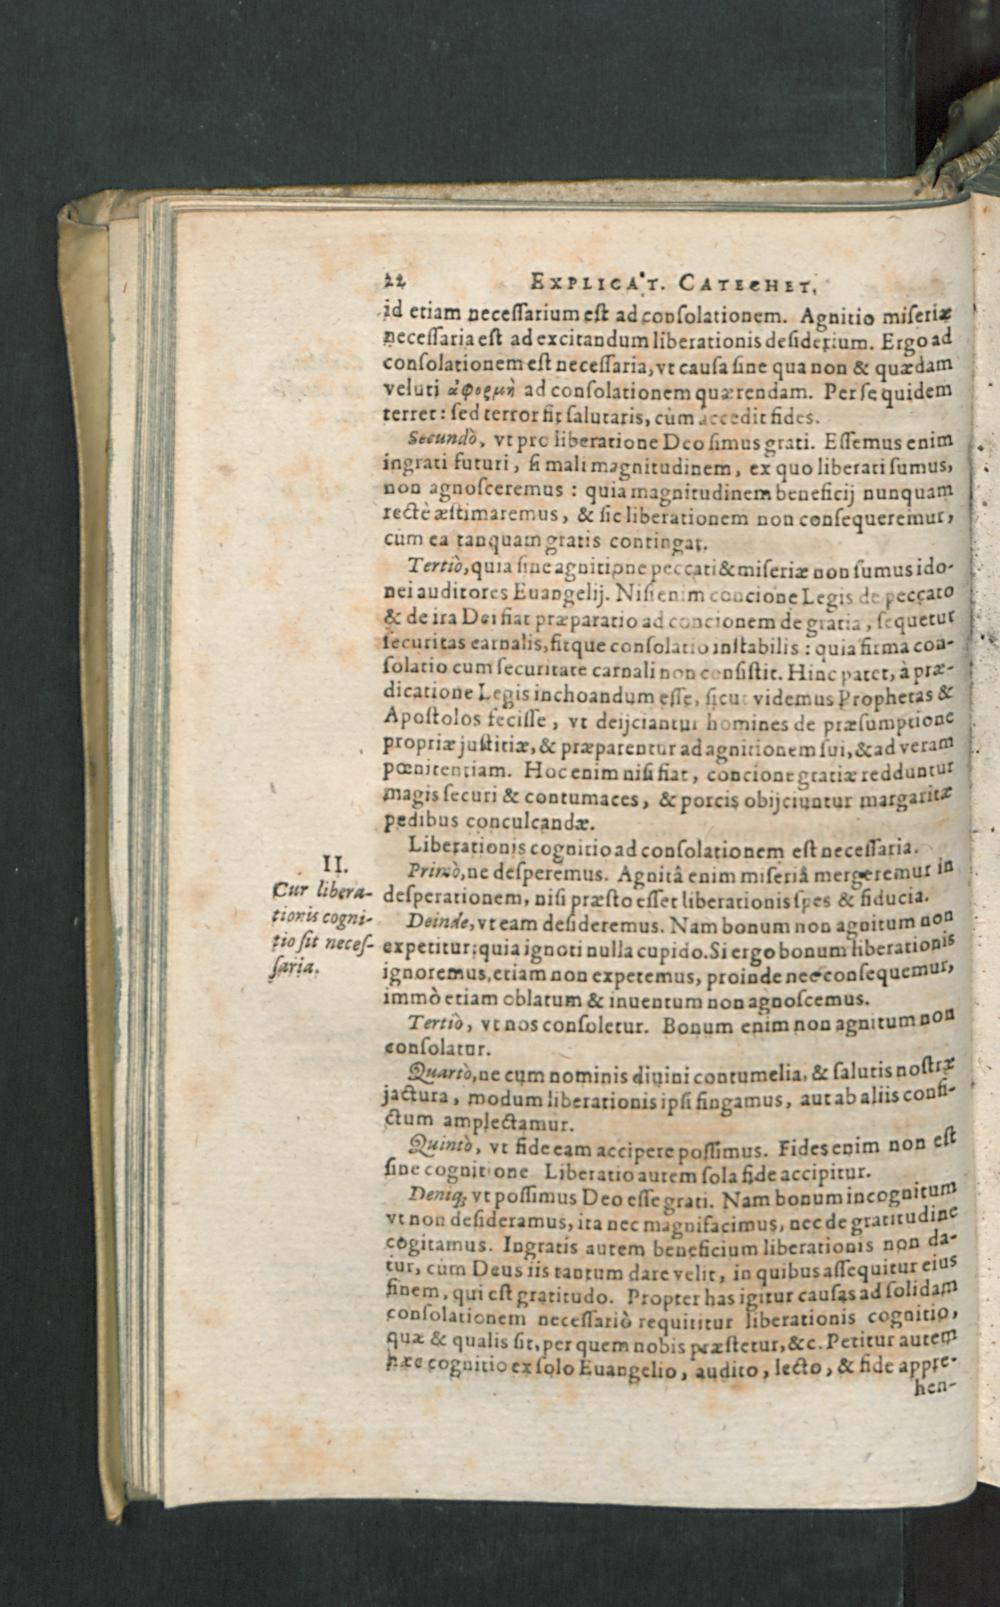 22 EXPLICAT. CATECHET.
id etiam necessarium est ad consolationem. Agnitio miseriæ
necessaria est ad excitandum liberationis desiderium. Ergo ad
consolationem est necessaria, vt causa sine qua non & quædam
veluti ἀφορμὴ ad consolationem quærendam. Per se quidem
terret: sed terror fit salutaris, cùm accedit fides.
Secundò, vt pro liberatione Deo simus grati. Essemus enim
ingrati futuri, si mali magnitudinem, ex quo liberati sumus,
non agnosceremus: quia magnitudinem beneficij nunquam
rectè æstimaremus, & sic liberationem non consequeremur,
cùm ea tanquam gratis contingat.
Tertiò, quia sine agnitione peccati & miseriæ non sumus ido-
nei auditores Euangelij. Nisi enim concione Legis de peccato
& de ira Dei fiat præparatio ad concionem de gratia, sequetur
securitas carnalis, fitque consolatio instabilis: quia firma con-
solatio cum securitate carnali non consistit. Hinc patet, à præ-
dicatione Legis inchoandum esse, sicut videmus Prophetas &
Apostolos fecisse, vt deijciantur homines de præsumptione
propriæ justitiæ, & præparentur ad agnitionem sui, & ad veram
pœnitentiam. Hoc enim nisi fiat, concione gratiæ redduntur
magis securi & contumaces, & porcis obijciuntur margaritæ
pedibus conculcandæ.
Liberationis cognitio ad consolationem est necessaria.
II.
Cur libera-
tionis cogni-
tio sit neces-
saria.
Primò, ne desperemus. Agnitâ enim miseriâ mergeremur in
desperationem, nisi præsto esset liberationis spes & fiducia.
Deinde, vt eam desideremus. Nam bonum non agnitum non
expetitur: quia ignoti nulla cupido. Si ergo bonum liberationis
ignoremus, etiam non expetemus, proinde nec consequemur,
immò etiam oblatum & inuentum non agnoscemus.
Tertiò, vt nos consoletur. Bonum enim non agnitum non
consolatur.
Quartò, ne cum nominis diuini contumelia, & salutis nostræ
jactura, modum liberationis ipsi fingamus, aut ab aliis confi-
ctum amplectamur.
Quintò, vt fide eam accipere possimus. Fides enim non est
sine cognitione Liberatio autem sola fide accipitur.
Deniq; vt possimus Deo esse grati. Nam bonum incognitum
vt non desideramus, ita nec magnifacimus, nec de gratitudine
cogitamus. Ingratis autem beneficium liberationis non da-
tur, cùm Deus iis tantum dare velit, in quibus assequitur eius
finem, qui est gratitudo. Propter has igitur causas ad solidam
consolationem necessariò requititur liberationis cognitio,
quæ & qualis sit, per quem nobis præstetur, &c. Petitur autem
hæc cognitio ex solo Euangelio, audito, lecto, & fide appre-
hen-